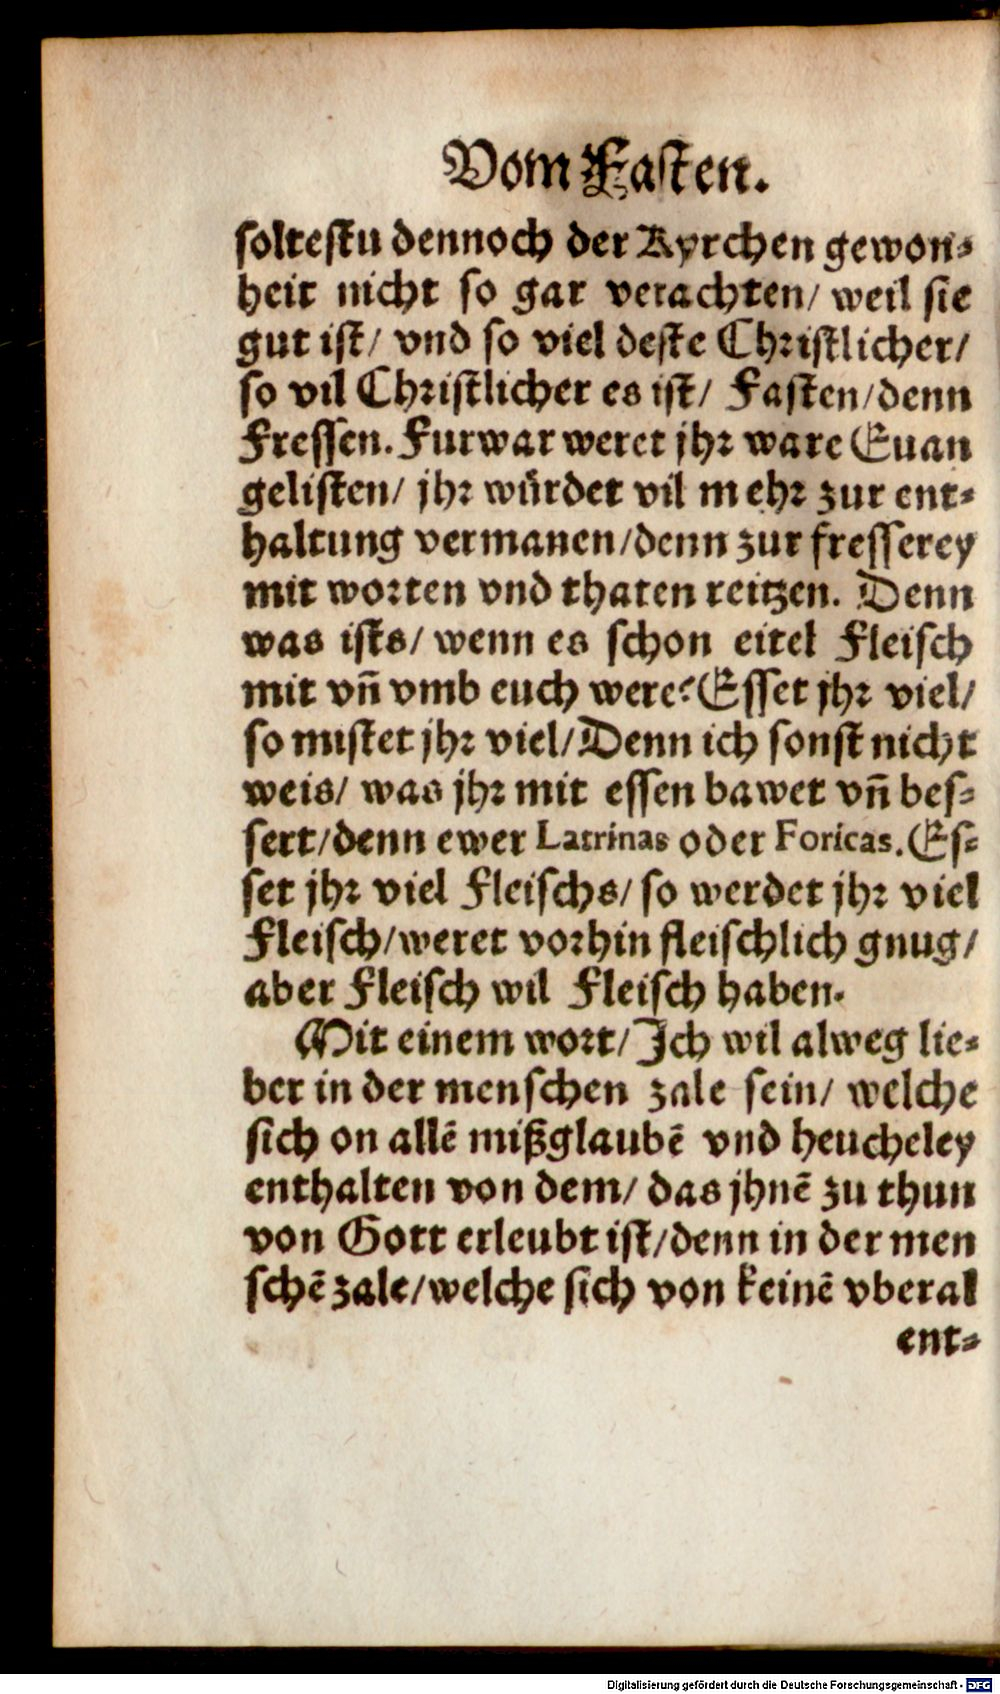 Vom Fasten.
soltestu dennoch der Kyrchen gewon⸗
heit nicht so gar verachten/ weil sie
gut ist/ vnd so viel deste Christlicher/
so vil Christlicher es ist/ Fasten/denn
Fressen. Furwar weret jhr ware Euan
gelisten/ jhr würdet vil mehr zur ent⸗
haltung vermanen/denn zur fresserey
mit worten vnd thaten reitzen. Denn
was ists/ wenn es schon eitel Fleisch
mit vñ vmb euch were? Esset jhr viel/
so mistet jhr viel/Denn ich sonst nicht
weis/ was jhr mit essen bawet vñ bes⸗
sert/denn ewer Latrinas oder Foricas. Es⸗
set jhr viel Fleischs/ so werdet jhr viel
Fleisch/weret vorhin fleischlich gnug/
aber Fleisch wil Fleisch haben.
Mit einem wort/ Ich wil alweg lie⸗
ber in der menschen zale sein/ welche
sich on allē mißglaubē vnd heucheley
enthalten von dem/ das jhnē zu thun
von Gott erleubt ist/denn in der men
schē zale/welche sich von keinē vberal
ent⸗
Digitalisierung gefördert durch die Deutsche Forschungsgemeinschaft - DFG